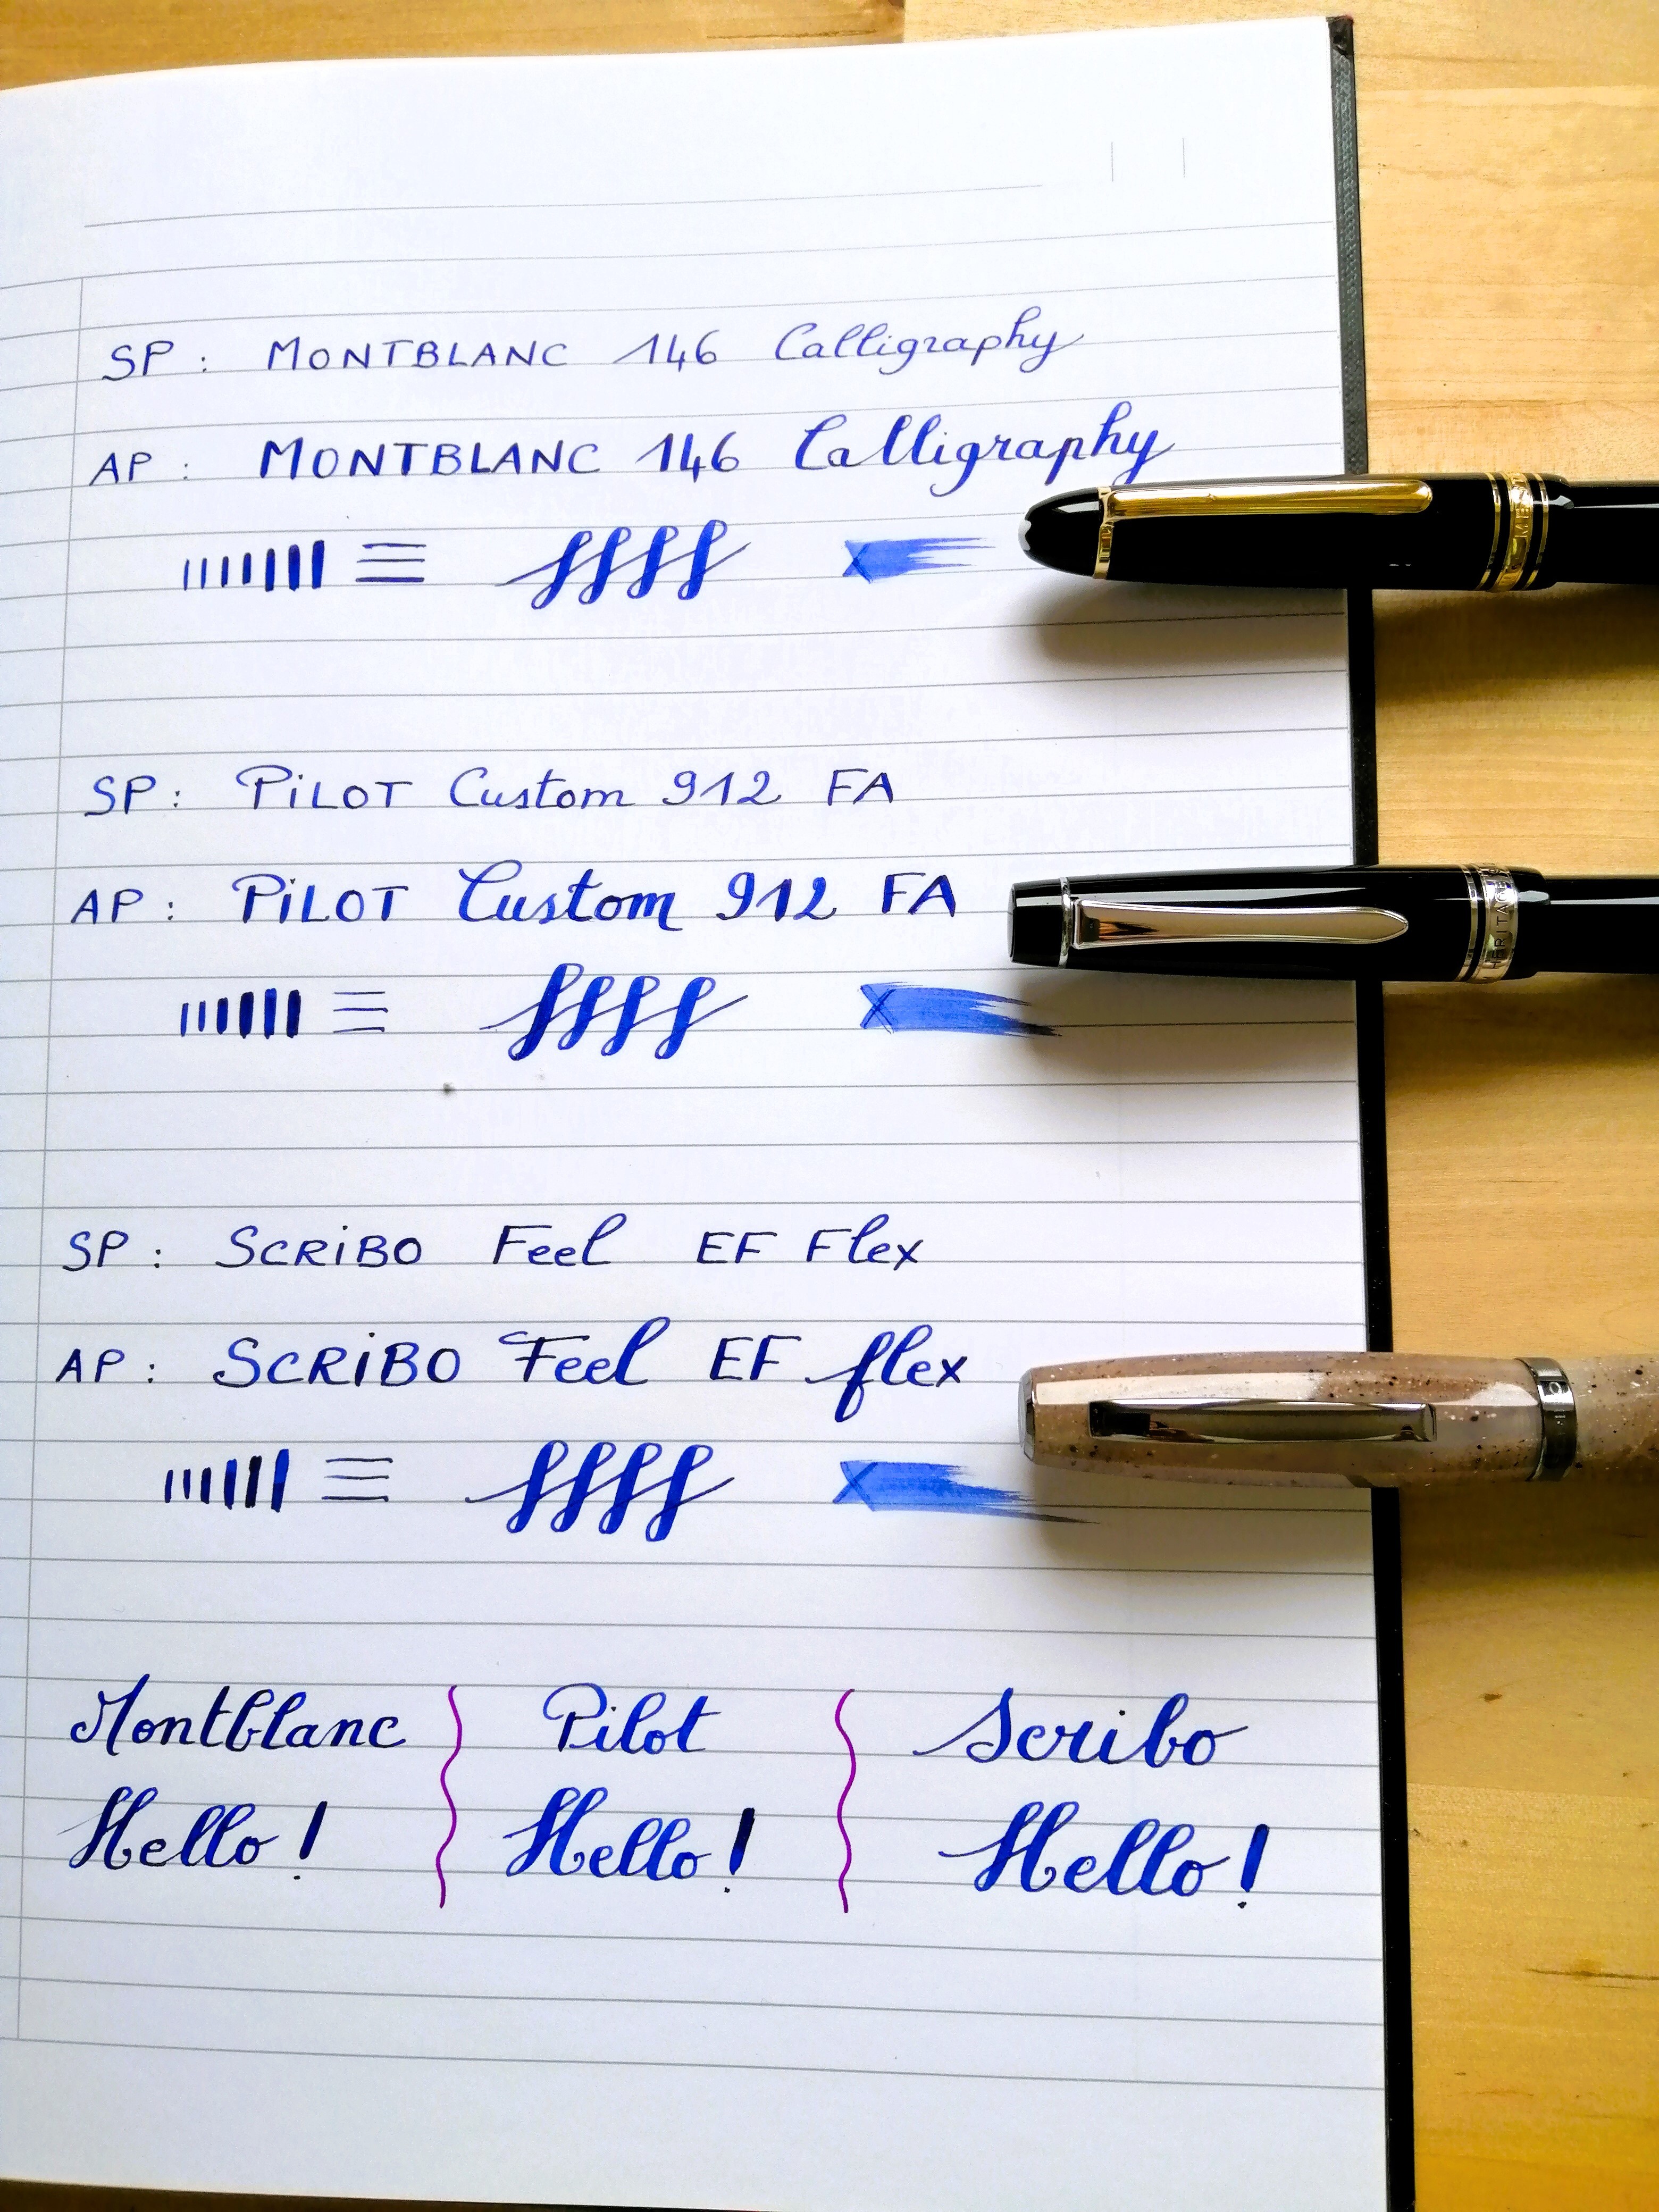 SP : MONTBLANC 146 Calligraphy
AP : MONTBLANC 146 Calligraphy
SP : PiLOT Custom 912 FA
AP : PiLOT Custom 912 FA
SP : SCRiBO Feel EF Flex
AP : SCRiBO Feel EF flex
Montblanc
Hello !
Pilot
Hello !
Scribo
Hello !